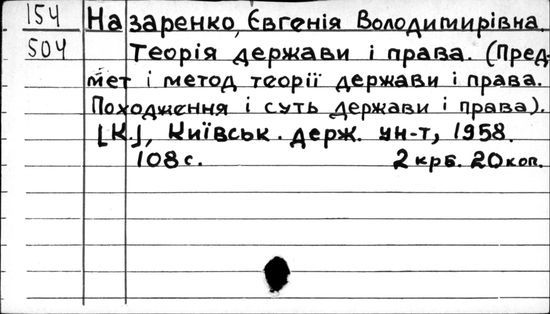 154
504
Назаренко, Євгенія Володимирівна.
Теорія держави і права. (Пред-
мет і метод теорії держави і права.
Походження і суть держави і права).
[К.], Київськ. держ. ун-т, 1958.
108 с. 2 крб. 20 коп.